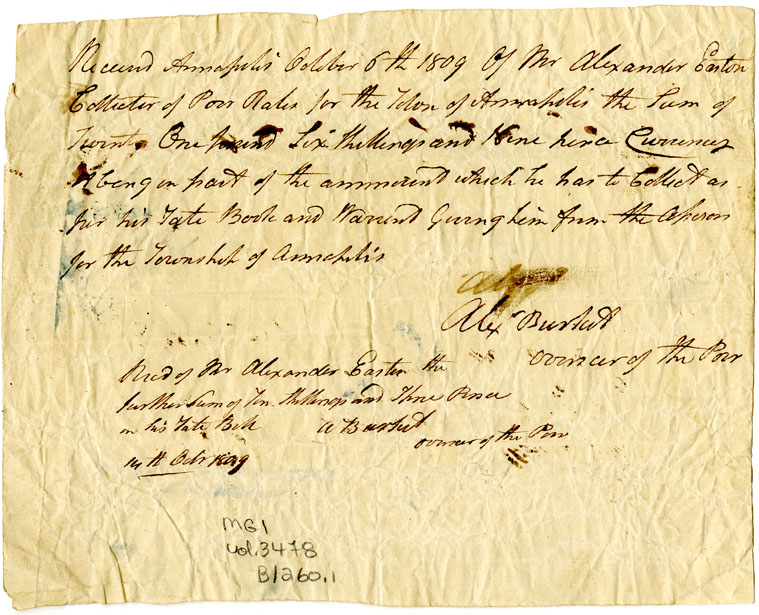 Received Annapolis October 6th 1809 Of Mr Alexander Easton
Collecter of Poor Rates for the Town of Annapolis the Sum of
Twenty One pound Six Shillings and Nine pence Currency
being in part of the ammount which he has to Collect as
per his Rate Book and Warrent Giving him from the
for the Township of Annapolis
Alexr Burket
overseer of the Poor
Recd of Mr Alexander Easton the
further Sum of Ten Shillings and Three Pence
on his Rate Bill A Burket
overseer of the Poor
14th Octr 1809
MG1
vol. 3478
B/260.1